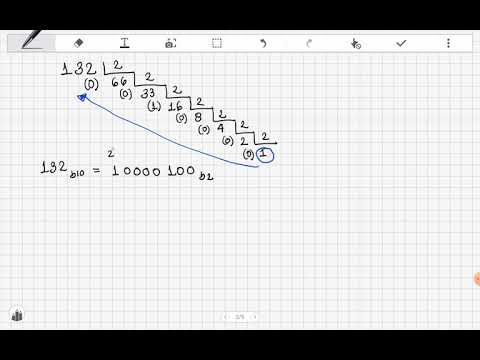 132 2
(0) 66 2
(0) 33 2
(1) 16 2
(0) 8 2
(0) 4 2
(0) 2 2
(0) 1
2
132 b10 = 10000100 b2
3/5